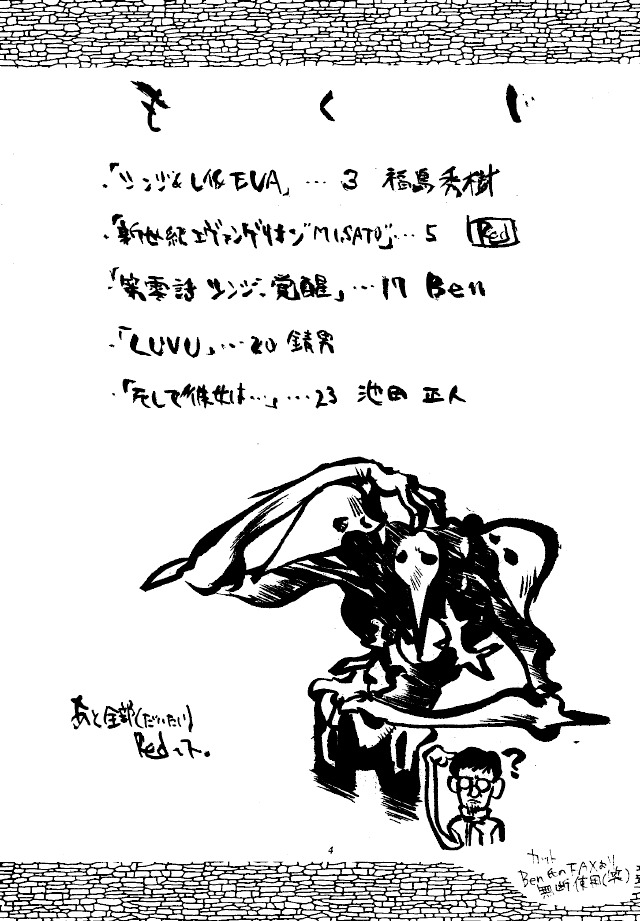 もくじ
・「シンジ&レイ&EVA」… 3 福島秀樹
・「新世紀エヴァンゲリオン"MISATO"」… 5 Red
・「第零話 シンジ、覚醒」… 17 Ben
・「LUVU」… 20 錆男
・「そして彼女は…」… 23 池田 正人
あと全部(だいたい)
Redっス。
?
4
カット
Ben氏のFAXより
無断使用(笑)